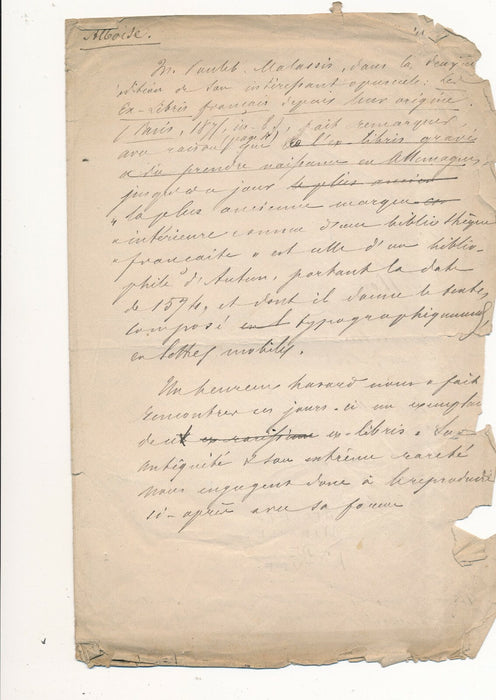 Alboise.
M. Poulet-Malassis, dans la deuxième
édition de son intéressant opuscule : Les
Ex-Libris français depuis leur origine
(Paris, 1875, in-8°), fait remarquer
avec raison que l'ex-libris gravé
a dû prendre naissance en Allemagne,
jusqu'à ce jour le plus ancien
"la plus ancienne marque
"intérieure connue d'une bibliothèque
"française" est celle d'un biblio-
phile d'Autun, portant la date
de 1574, et dont il donne le texte,
composé typographiquement
en lettres mobiles.
Un heureux hasard nous a fait
rencontrer ces jours-ci un exemplaire
de cet ex-libris. Son
antiquité & son extrême rareté
nous engagent donc à le reproduire
ci-après avec sa forme